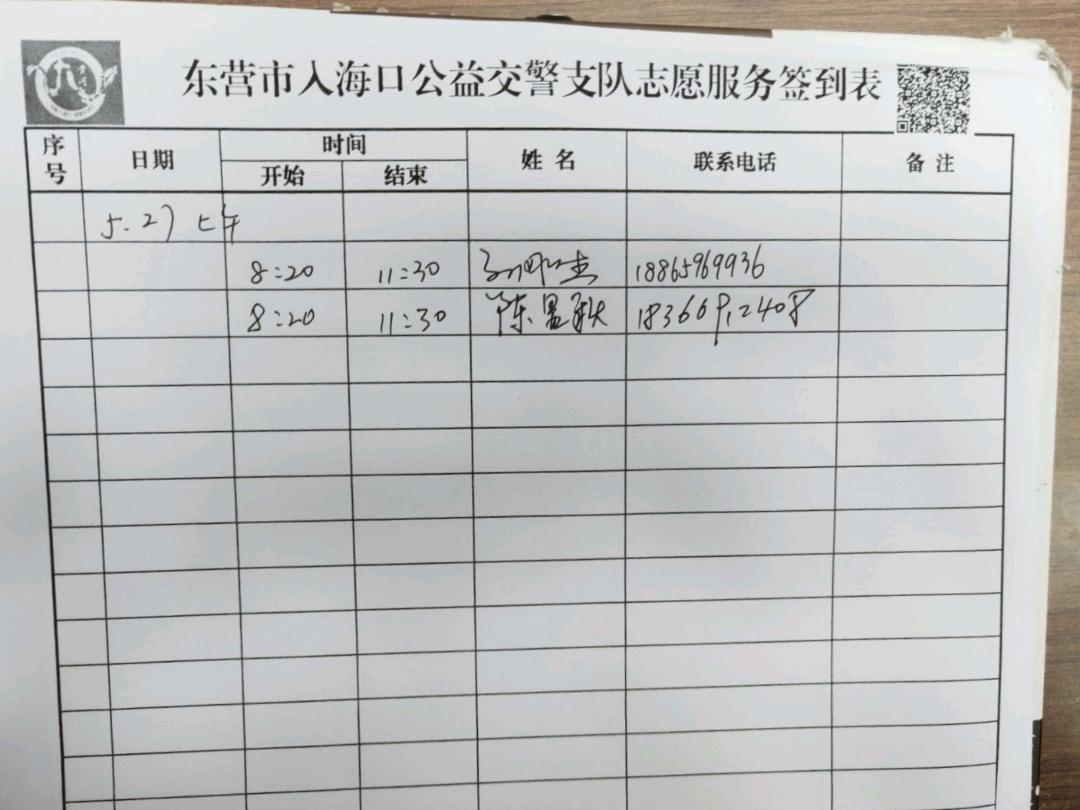 东营市入海口公益交警支队志愿服务签到表
序号 日期 时间 姓名 联系电话 备注
开始 结束
5.27 上午
8:20 11:30 18865969936
8:20 11:30 陈 秋